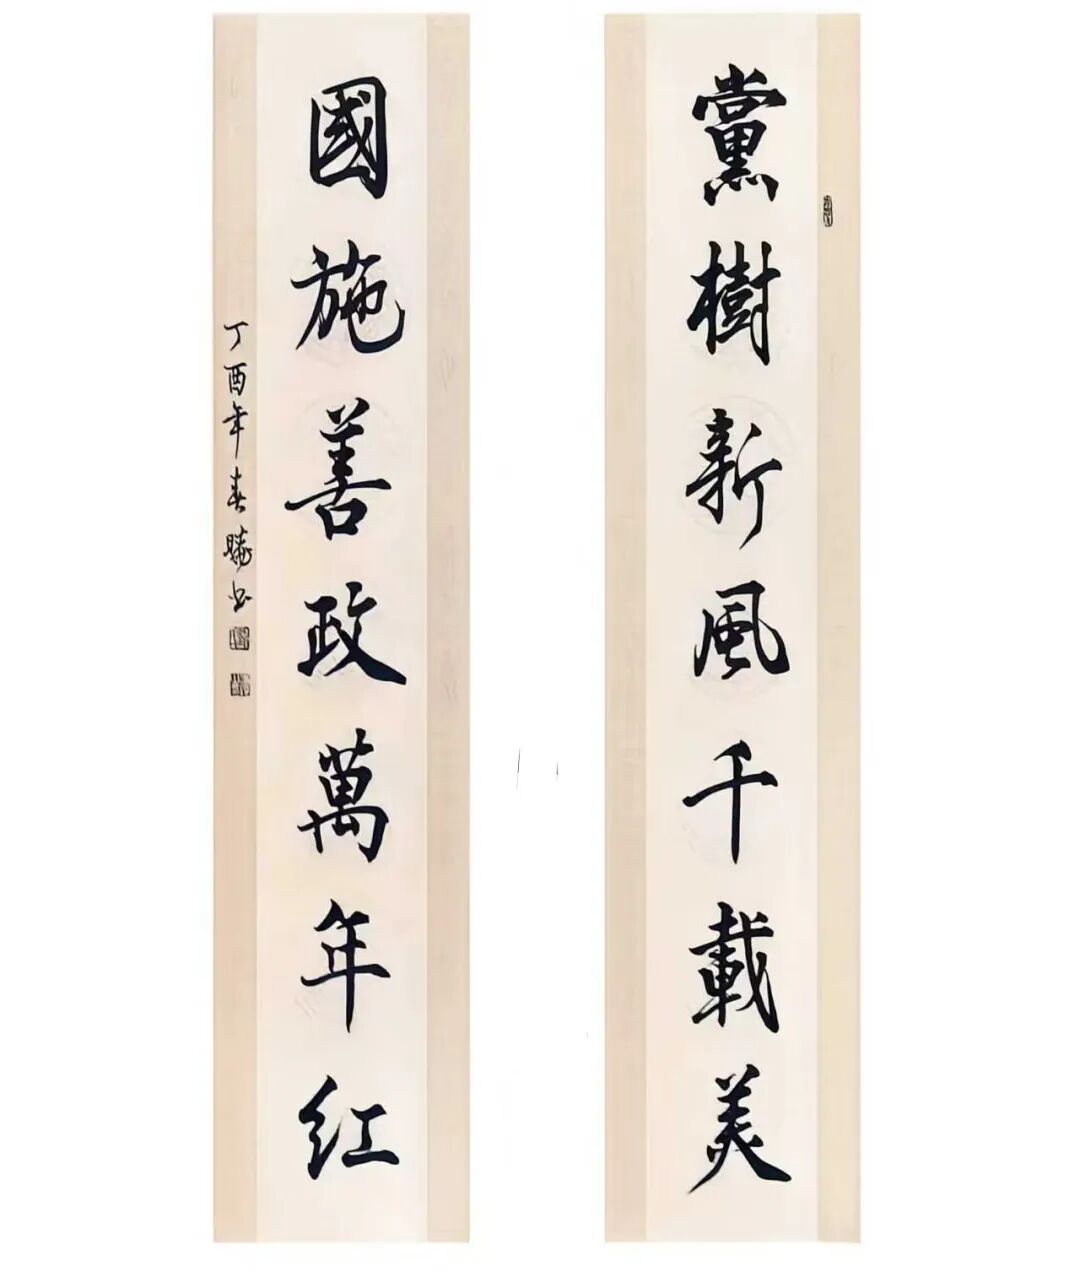 黨樹新風千載美
國施善政萬年红
丁酉年春曉书